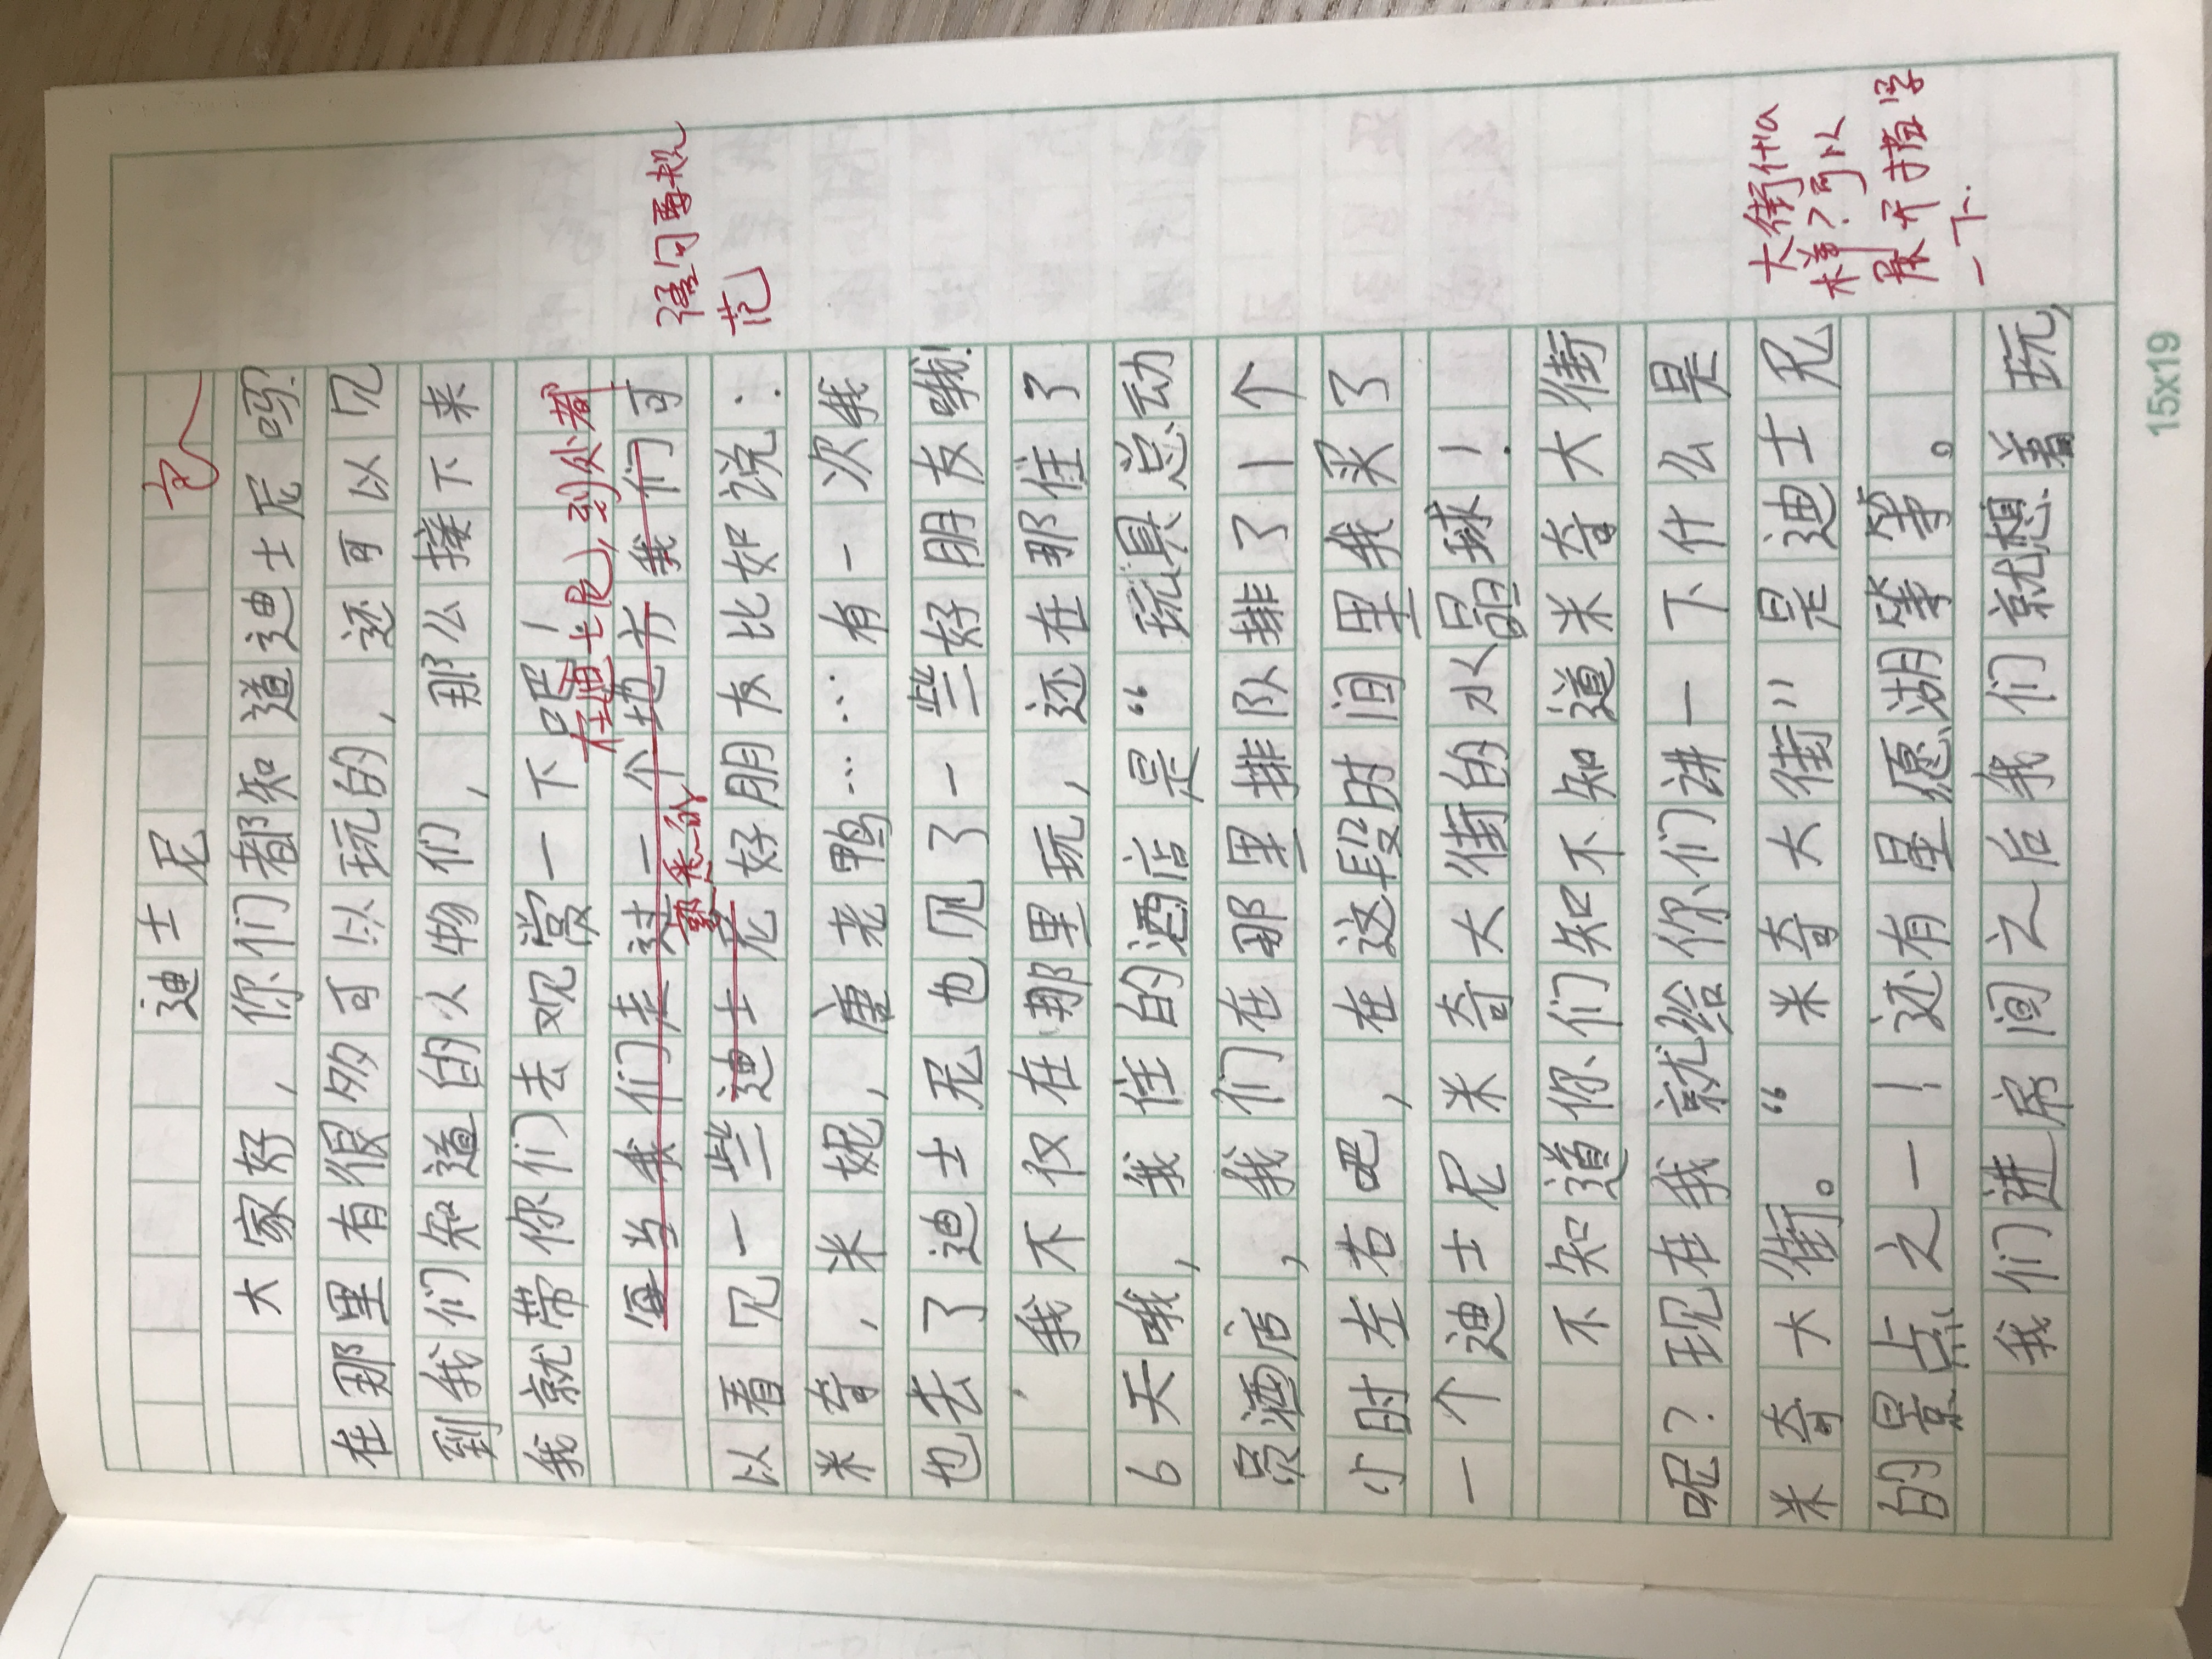 迪士尼
大家好，你们都知道迪士尼吗？
在那里有很多可以玩的，还可以见
到我们知道的人物们，那么接下来
我就带你们去观赏一下吧！
在迪士尼，到处都
每当我们走过一个地方我们可
语句要规
范
熟悉的
以看见一些迪士尼好朋友比如说：
米奇，米妮，唐老鸭……有一次我
也去了迪士尼也见了一些好朋友哦！
我不仅在那里玩，还在那住了
6天哦，我住的酒店是“玩具总动
员酒店，我们在那里排队排了1个
小时左右吧，在这段时间里我买了
一个迪士尼米奇大街的水晶球！
不知道你们知不知道米奇大街
呢？现在我就给你们讲一下什么是
米奇大街。“米奇大街”是迪士尼
的景点之一！还有星愿湖等等。
大街什么
样？可以
展开描写
一下.
我们进房间之后我们就想着玩，
15x19